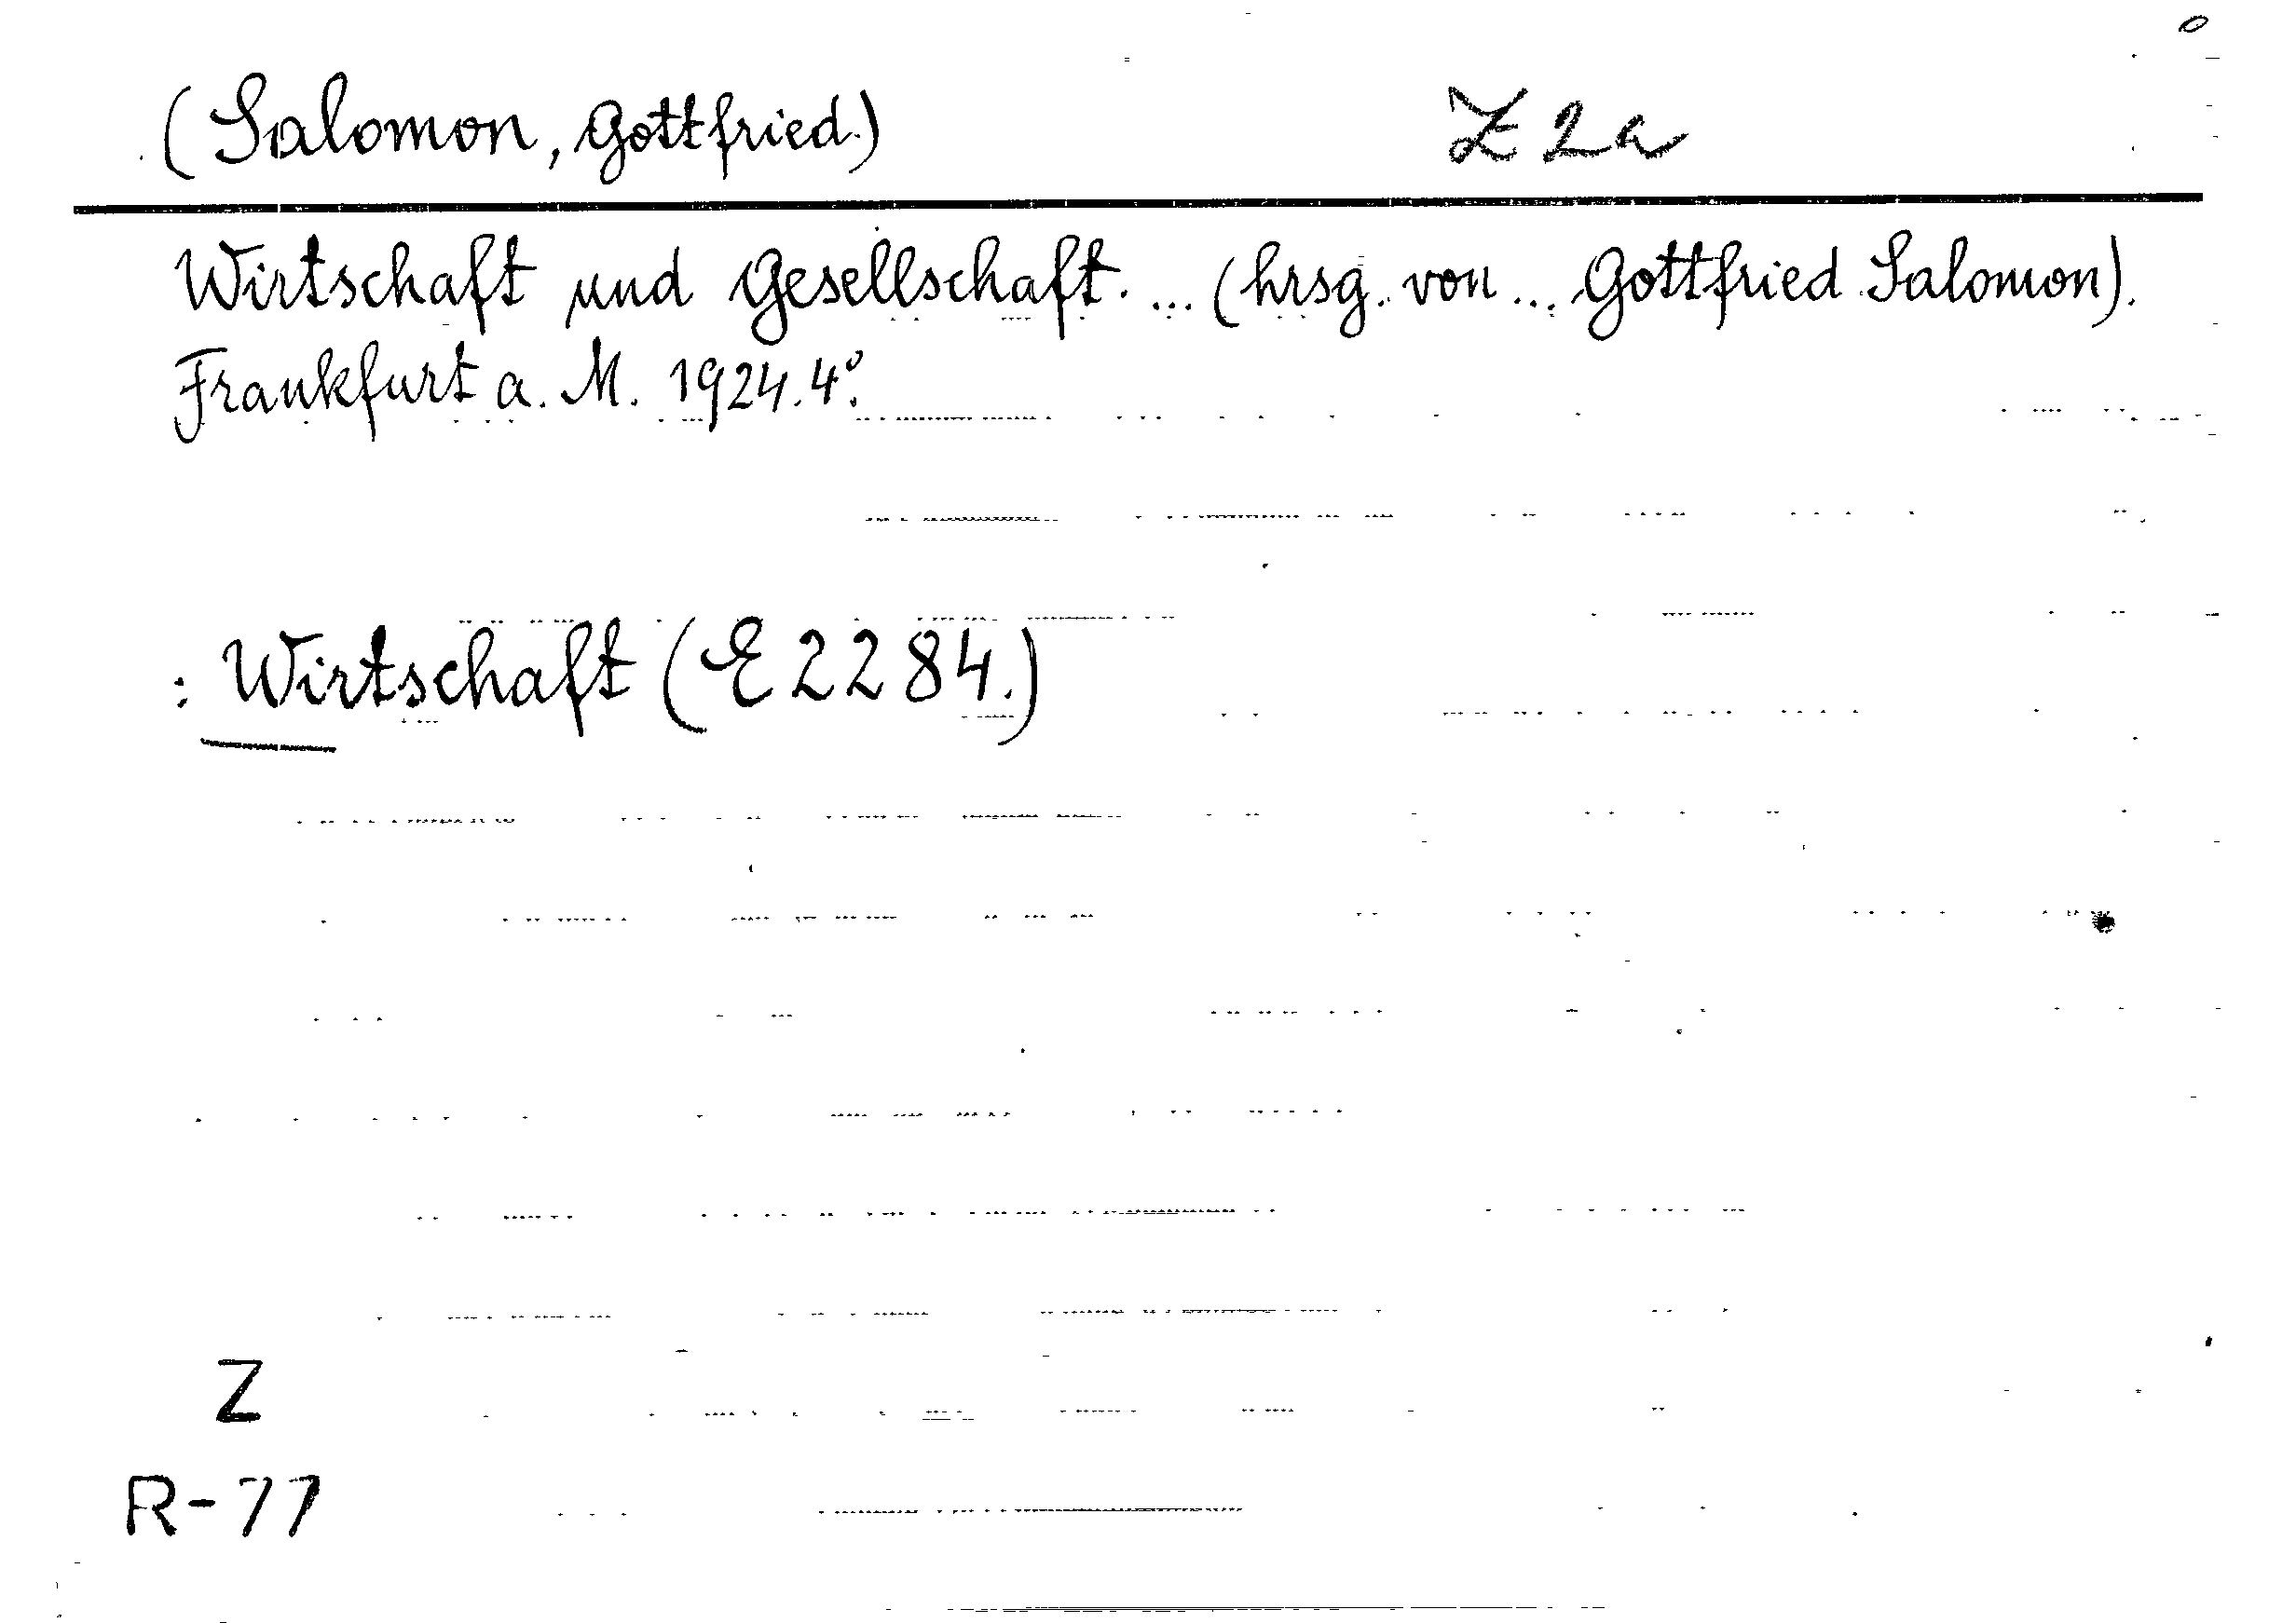 (Salomon, Gottfried.) Z 2a
Wirtschaft und Gesellschaft. ... (hrsg. von ... Gottfried Salomon).
Frankfurt a. M. 1924. 4°.
: Wirtschaft (E 2284.)
Z
R-77